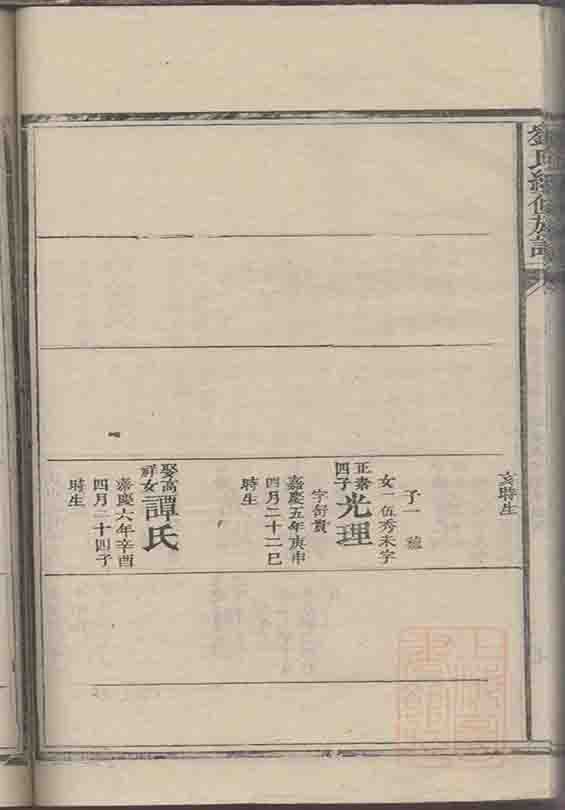 劉氏續修族譜
亥時生
子一
女一伍秀未字
正素四子
光理
字舒貴
嘉慶五年庚申
四月二十二巳
時生
娶高祥女
譚氏
嘉慶六年辛酉
四月二十四子
時生